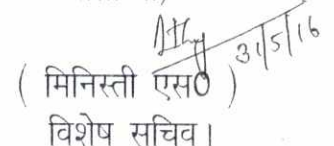 31/5/16
( मिनिस्ती एस0 )
विशेष सचिव।